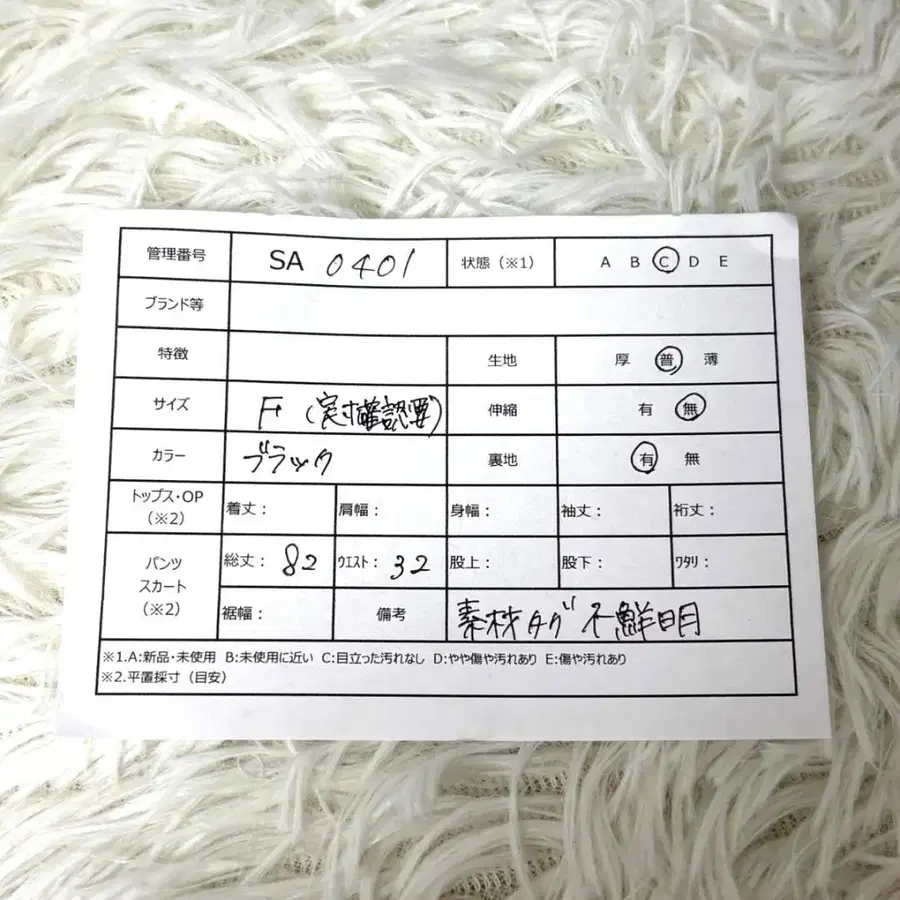 管理番号 SA 0401 状態（※1） A B C D E
ブランド等
特徴 生地 厚 普 薄
サイズ F（実寸確認要） 伸縮 有 無
カラー ブラック 裏地 有 無
トップス・OP（※2） 着丈： 肩幅： 身幅： 袖丈： 裄丈：
パンツ スカート（※2） 総丈：82 ウエスト：32 股上： 股下： ワタリ：
裾幅： 備考 素材タグ不鮮明
※1.A:新品・未使用 B:未使用に近い C:目立った汚れなし D:やや傷や汚れあり E:傷や汚れあり
※2.平置採寸（目安）